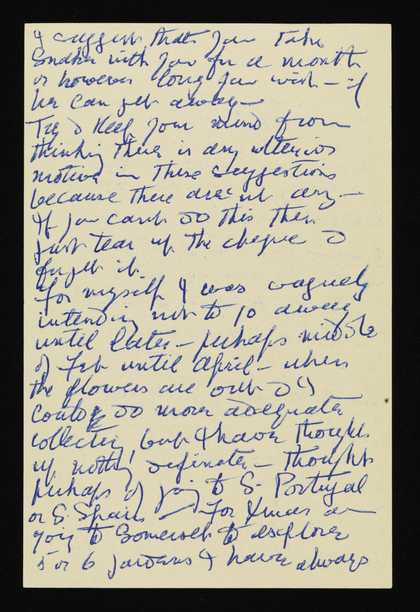 I suggest that you take
Sandra with you for a month
or however long you wish – if
he can get away –
Try & keep your mind from
thinking there is any ulterior
motive in these suggestions
because there are not any –
If you can't do this then
just tear up the cheque &
forget it.
For myself I was vaguely
intending not to go away
until later – perhaps middle
of Feb until April – when
the flowers are out & I
could do more adequate
collecting but I have thought
up nothing definite – thought
perhaps of going to S. Portugal
or S. Spain – For Xmas am
going to Somerset to explore
5 or 6 gardens I have always